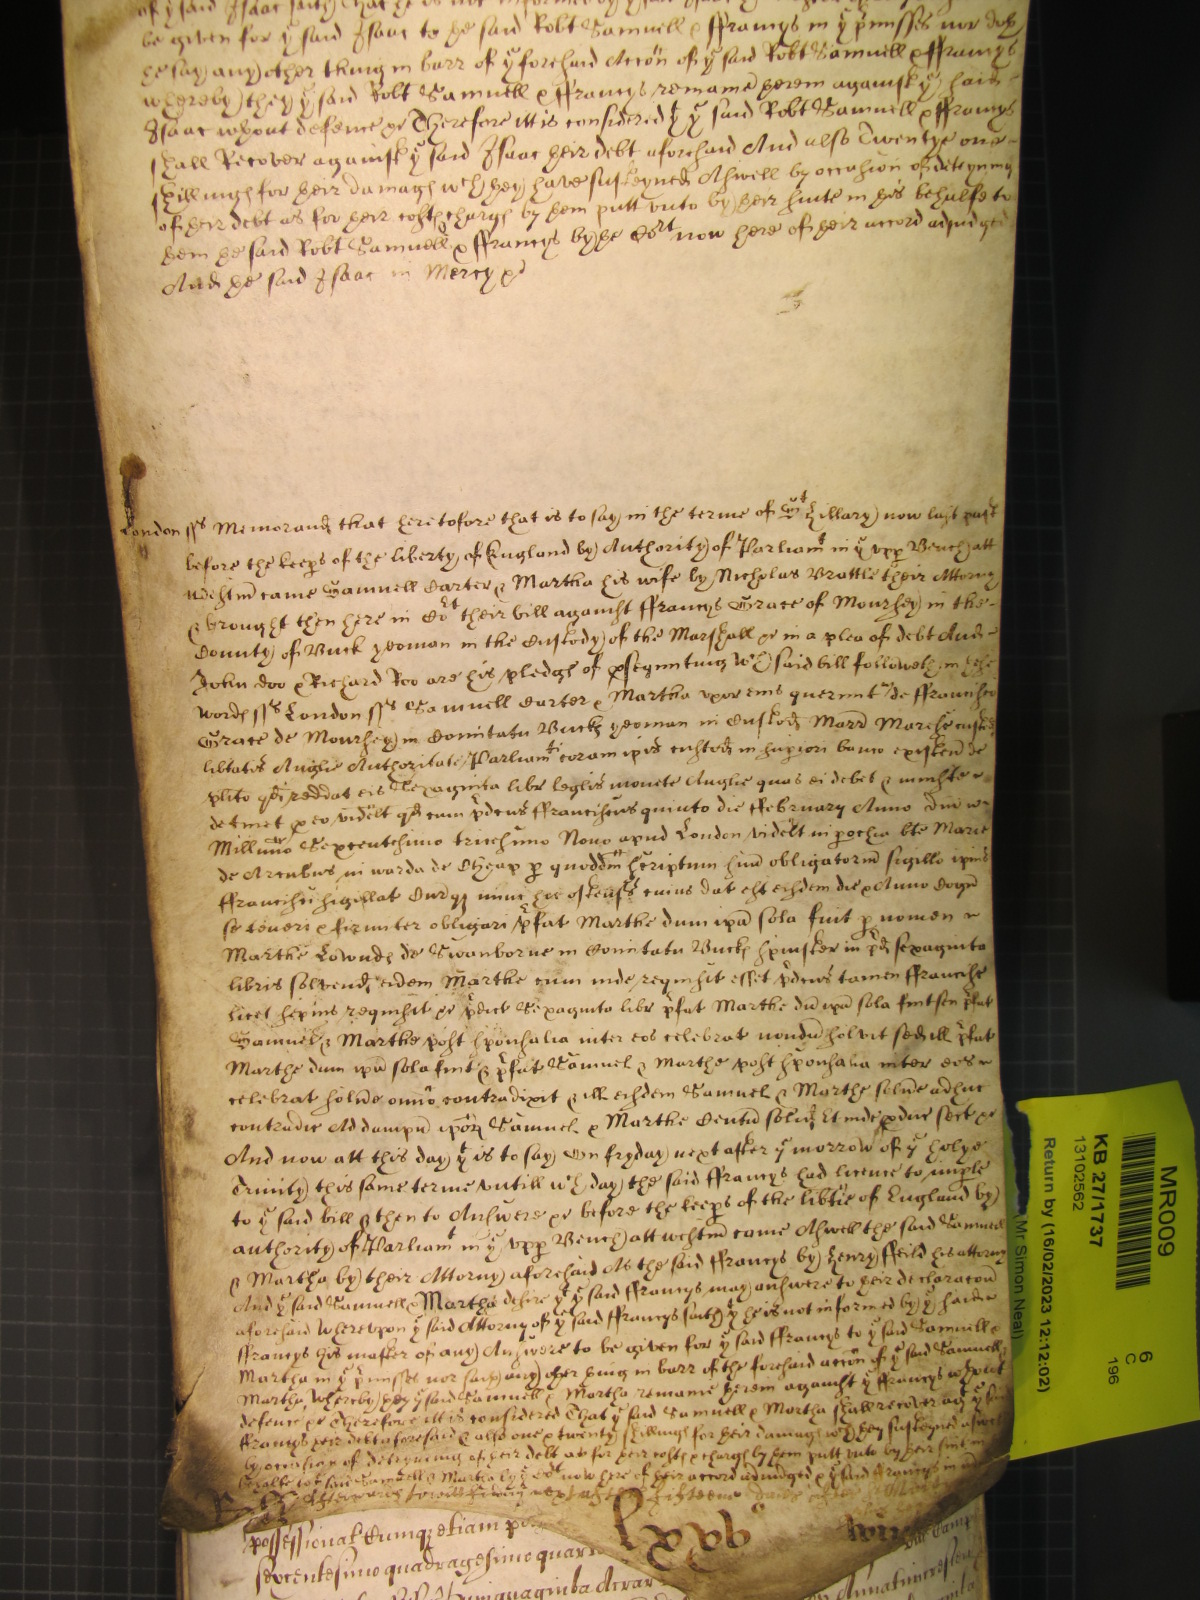 be given for yͤ said Isaac to the said Robt Samuell & ffrancys in yͤ pͬmisses nor doth
he say any other thing in barr of yͤ foresaid Accon of yͤ said Robt Samuell & ffrancys
whereby they yͤ said Robt Samuell & ffrancys remaine therein against yͤ said
Isaac wthout defence &c Therefore itt is considered yͭ yͤ said Robt Samuell & ffrancys
shall Recover against yͤ said Isaac their debt aforesaid And also Twentye one
shillings for their damages wch they have susteyned Aswell by occasion of deteyning
of their debt as for their costs & charges by them putt unto by their suite in this behalfe to
them the said Robt Samuell & ffrancys by the Cort now here of their accord adjudged
And the said Isaac in Mercy &c
London ss Memorand that heretofore that is to say in the terme of Sͭ Hillary now last past
before the keeps of the liberty of England by Authority of Parliamt in yͤ upp Bench att
Westm came Samuell Carter & Martha his wife by Nicholas Brattle their Attorny
& brought then here in Cort their bill against ffrancys Grace of Mourssley in the
County of Buck yeoman in the Custody of the Marshall &c in a plea of debt And
John Doo & Richard Roo are his pledges of psequuting wch said bill followeth in these
words ss London ss Samuell Carter & Martha uxor eius querunt de ffrancisco
Grace de Moursley in Comitatu Buck yeoman in Custod Marr Maresc custod
libtatis Anglie Authoritate Parliamti coram ipis custod in supiori banco existen de
plito qd reddat eis Sexaginta libr leglis monete Anglie quas ei debet & iniuste
detinet p eo videlt qd cum pdcus ffranciscus quinto die ffebruary Anno Dni
Millimo Sexcentesimo tricesimo Nono apud London videlt in pochia bte Marie
de Arcubus in warda de Cheap p quoddm scriptum suu obligatoriu sigillo ipius
ffrancisci sigillat Curq nunc hic ostens cuius dat est eisdem die & Anno Cogn
se teneri & firmiter obligari pfat Marthe dum ipa sola fuit p nomen
Marthe Lowndes de Swanborne in Comitatu Buck spinster in pd sexaginta
libris solvend eidem Marthe cum inde requisit esset pdcus tamen ffrancisc
licet sepius requisit &c pdict Sexaginta libr pfat Marthe du ipa sola fuit seu pfat
Samuel & Marthe post sponsalia inter eos celebrat nondu solvit sed ill pfat
Marthe dum ipa sola fuit & pfat Samuel & Marthe post sponsalia inter eos
celebrat solvere omio contradixit & ill eisdem Samuel & Marthe solvere adhuc
contradic Ad dampu ipor Samuel & Marthe Centu solid Et inde pduc sect &c
And now att this day yͭ is to say on fryday next after yͤ morrow of yͤ holye
Trinity this same terme untill wch day the said ffrancys had licence to imple
to yͤ said bill & then to Answere &c before the keeps of the libtie of England by
authority of Parliamt in yͤ upp Bench att westm came Aswell the said Samuell
& Martha by their Attorny aforesaid As the said ffrancys by Henry ffeild his attorny
And yͤ said Samuell & Martha desire yͭ yͤ said ffrancys may answere to their declaracon
aforesaid Whereupon yͤ said Attorny of yͤ said ffrancys saith yͭ he is not informed by yͤ said
ffrancys his master of any Answere to be given for yͤ said ffrancys to yͤ said Samuell &
Martha in yͤ pͬmisses nor saith any other thing in barr of the foresaid accon of yͤ said Samuell &
Martha Whereby they yͤ said Samuell & Martha remaine therein against yͤ ffrancys wthout
defence &c Therefore itt is considered That yͤ said Samuell & Martha shall recover agt yͤ said
ffrancys their debt aforesaid & also one & twenty shillings for their damages wch they susteyned aswell
by occasion of deteyning of their debt as for their costs & charges by them putt unto by their suit in
behalfe to yͤ said Samuell & Martha by yͤ Cort now here of their accord adjudged & yͤ said ffrancys in
possessionat Cumq etiam
sexcentesimo quadragesimo quarto
MR009
6
C
196
KB 27/1737
13102562
Return by (16/02/2023 12:12:02)
Mr Simon Neal)